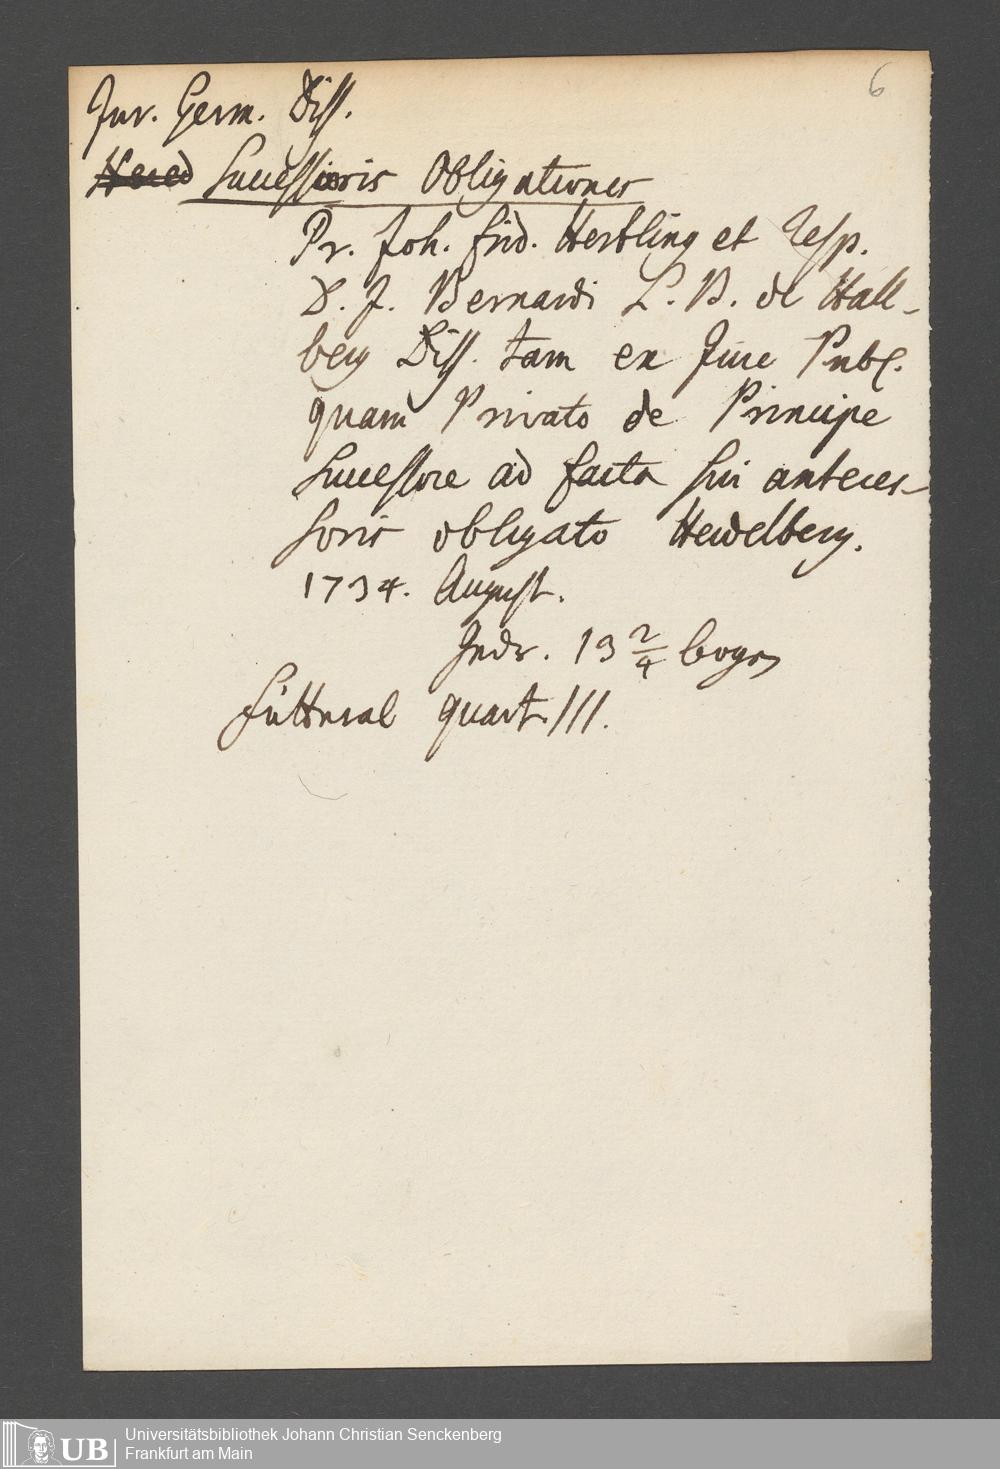 6
Jur. Germ. Diss.
Hered Successoris Obligationes
Pr. Joh. Frid. Hertling et Resp.
D. J. Bernardi L. B. de Hall-
berg Diss. tam ex Jure Publ.
quam Privato de Principe
Successore ad facta sui anteces-
soris obligato Heidelberg.
1734. August.
Jedr. 13 2/4 bogen
Futteral quart. III.
UB
Universitätsbibliothek Johann Christian Senckenberg
Frankfurt am Main